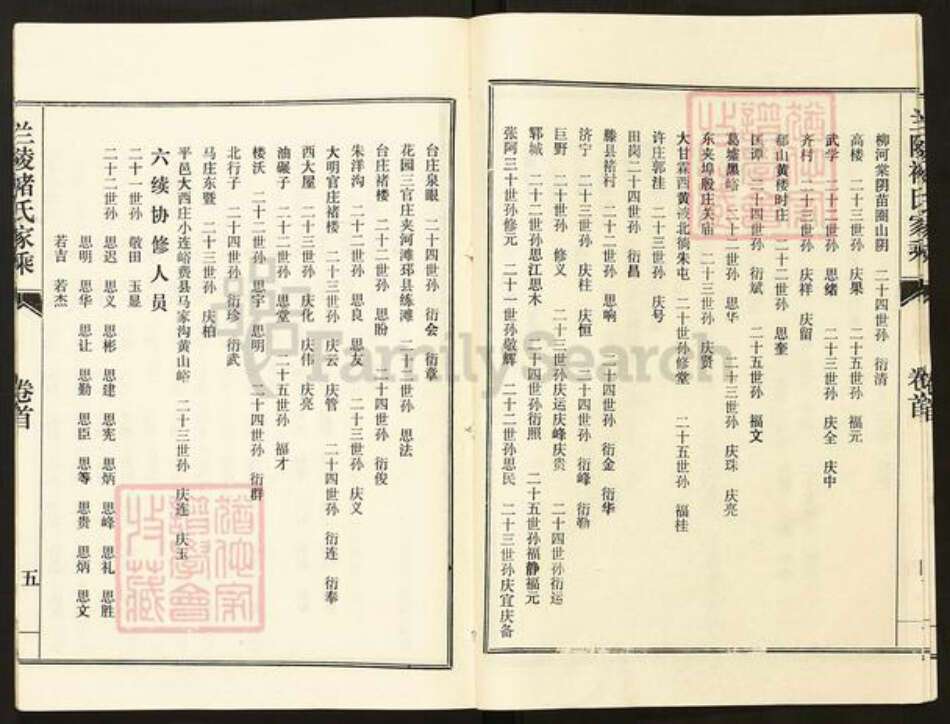 兰陵褚氏家乘
卷首
柳河棠阴苗圈山阴 二十四世孙 衍清
高楼 二十三世孙 庆果 二十五世孙 福元
武学 二十二世孙 思绪 二十三世孙 庆全 庆中
齐村 二十三世孙 庆祥 庆留
郗山黄楼时庄 二十二世孙 思奎
匡谭 二十四世孙 衍斌 二十五世孙 福文
葛墟黑峪 二十二世孙 思华 二十三世孙 庆珠 庆亮
东夹埠殷庄关庙 二十三世孙 庆贤
大甘霖西黄波北徜朱屯 二十世孙修堂 二十五世孙 福桂
许庄郭洼 二十三世孙 庆号
田岗二十四世孙 衍昌
滕县褚村 二十二世孙 思响 二十四世孙 衍金 衍华
济宁 二十三世孙 庆柱 庆恒 二十四世孙 衍峰 衍勒
巨野 二十世孙 修义 二十三世孙庆运庆峰庆贵 二十四世孙衍运
郓城 二十二世孙思江思木 二十四世孙衍照 二十五世孙福静福元
张阿三十世孙修元 二十一世孙敬辉 二十二世孙思民 二十三世孙庆宜庆备
台庄泉眼 二十四世孙 衍会 衍章
花园三官庄夹河滩邳县练滩 二十二世孙 思法
台庄褚楼 二十二世孙 思盼 二十四世孙 衍俊
朱洋沟 二十二世孙 思良 思友 二十三世孙 庆义
大明官庄褚楼 二十三世孙 庆云 庆管 二十四世孙 衍连 衍奉
西大屋 二十三世孙 庆化 庆伟 庆亮
油碾子 二十二世孙 思堂 二十五世孙 福才
楼沃 二十二世孙 思宇 思明 二十四世孙 衍群
北行子 二十四世孙 衍珍 衍武
马庄东暨 二十三世孙 庆柏
平邑大西庄小连峪费县马家沟黄山峪 二十三世孙 庆连 庆玉
六续协修人员
二十一世孙 敬田 玉显
二十二世孙 思迟 思义 思彬 思建 思宪 思炳 思峰 思礼 思胜
思明 思华 思让 思勤 思臣 思等 思贵 思炳 思文
若吉 若杰
兰陵褚氏家乘
卷首
五
FamilySearch